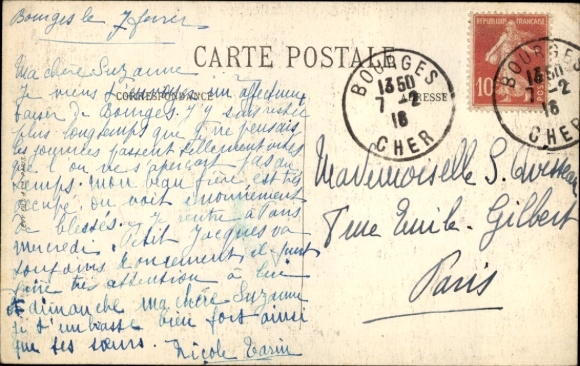 Bourges le 7 février
CARTE POSTALE
Ma chère Suzanne
Je viens t' un affectueux
CORRESPONDANCE
baiser de Bourges. J'y suis restée
plus longtemps que je ne pensais
les journées passent tellement vite
que l'on ne s'aperçoit pas du
temps. Mon beau frère est très
occupé, on voit énormément
de blessés. Je rentre à Paris
mercredi. Petit Jacques va
toujours doucement, il faut
faire très attention à lui
A dimanche ma chère Suzanne
je t'embrasse bien fort ainsi
que tes sœurs. Nicole Tarin
RÉPUBLIQUE FRANÇAISE
10
POSTES
BOURGES
13 50
7 - 2
16
CHER
BOURGES
13 50
7 - 2
16
CHER
ADRESSE
Mademoiselle S.
8 rue Emile Gilbert
Paris